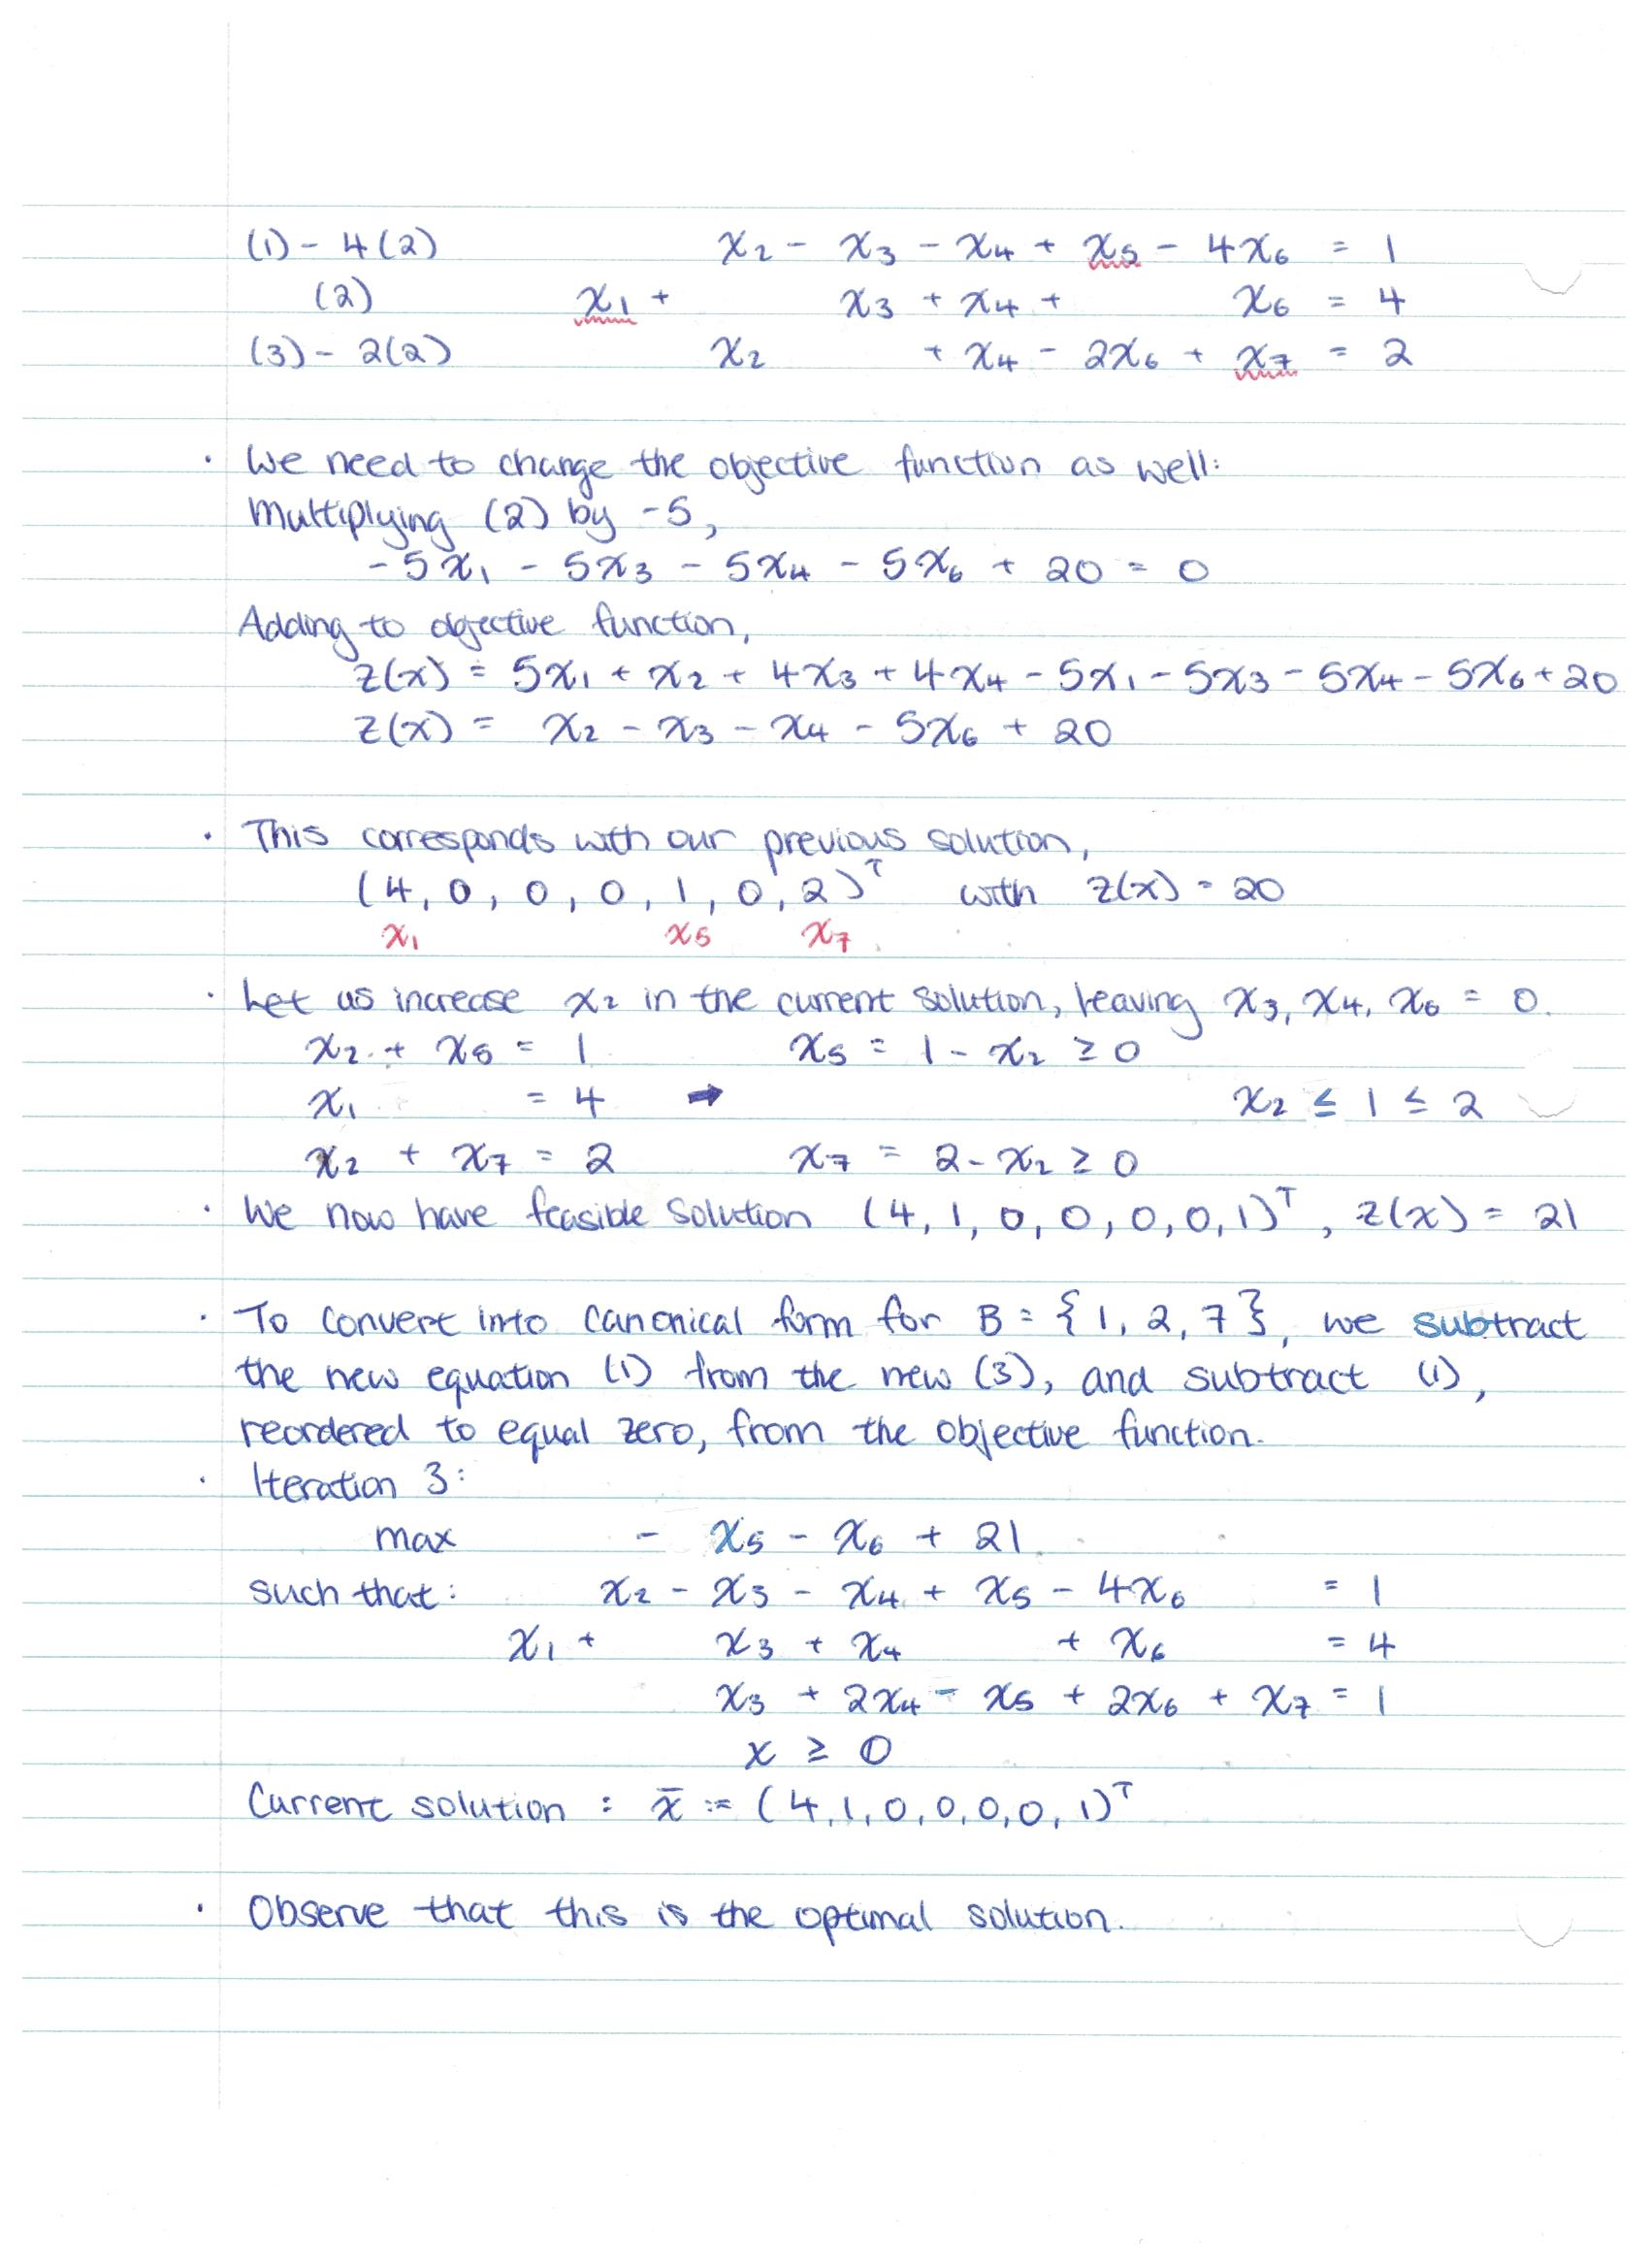 (1) - 4(2) x₂ - x₃ - x₄ + x₅ - 4x₆ = 1
(2) x₁ + x₃ + x₄ + x₆ = 4
(3) - 2(2) x₂ + x₄ - 2x₆ + x₇ = 2
· We need to change the objective function as well:
Multiplying (2) by -5,
-5x₁ - 5x₃ - 5x₄ - 5x₆ + 20 = 0
Adding to objective function,
z(x) = 5x₁ + x₂ + 4x₃ + 4x₄ - 5x₁ - 5x₃ - 5x₄ - 5x₆ + 20
z(x) = x₂ - x₃ - x₄ - 5x₆ + 20
· This corresponds with our previous solution,
(4, 0, 0, 0, 1, 0, 2)ᵀ with z(x) = 20
x₁ x₅ x₇
· Let us increase x₂ in the current solution, leaving x₃, x₄, x₆ = 0.
x₂ + x₅ = 1 x₅ = 1 - x₂ ≥ 0
x₁ = 4 ➡ x₂ ≤ 1 ≤ 2
x₂ + x₇ = 2 x₇ = 2 - x₂ ≥ 0
· We now have feasible solution (4, 1, 0, 0, 0, 0, 1)ᵀ, z(x) = 21
· To convert into canonical form for B = {1, 2, 7}, we subtract
the new equation (1) from the new (3), and subtract (1),
reordered to equal zero, from the objective function.
· Iteration 3:
max - x₅ - x₆ + 21
such that: x₂ - x₃ - x₄ + x₅ - 4x₆ = 1
x₁ + x₃ + x₄ + x₆ = 4
x₃ + 2x₄ - x₅ + 2x₆ + x₇ = 1
x ≥ 0
Current solution : x̄ := (4, 1, 0, 0, 0, 0, 1)ᵀ
· Observe that this is the optimal solution.